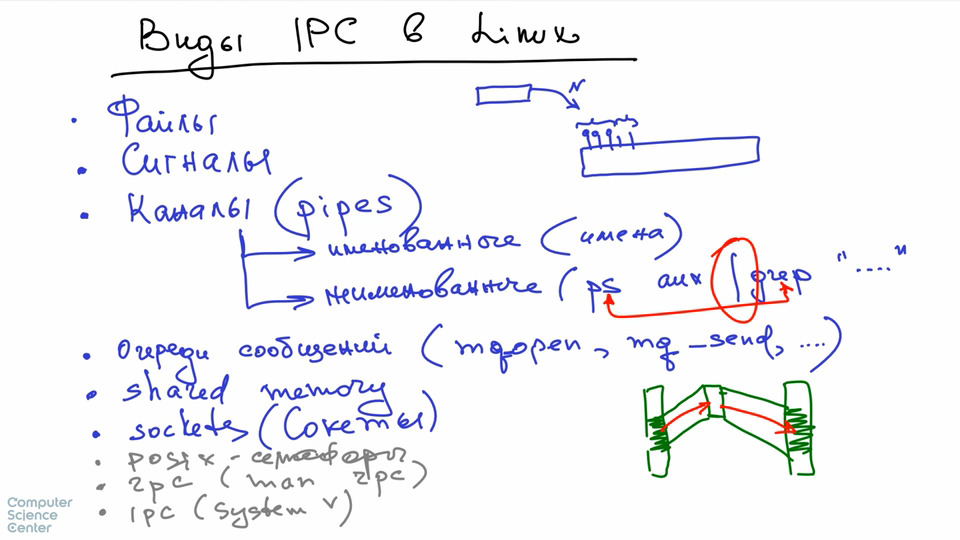 Виды IPC в Linux
N
• Файлы
• Сигналы
• Каналы (pipes)
именованные (имена)
неименованные (ps aux | grep "...."
• Очереди сообщений (mq_open, mq_send, ....)
• shared memory
• sockets (Сокеты)
• posix-семафоры
• rpc (man rpc)
• ipc (System V)
Computer
Science
Center